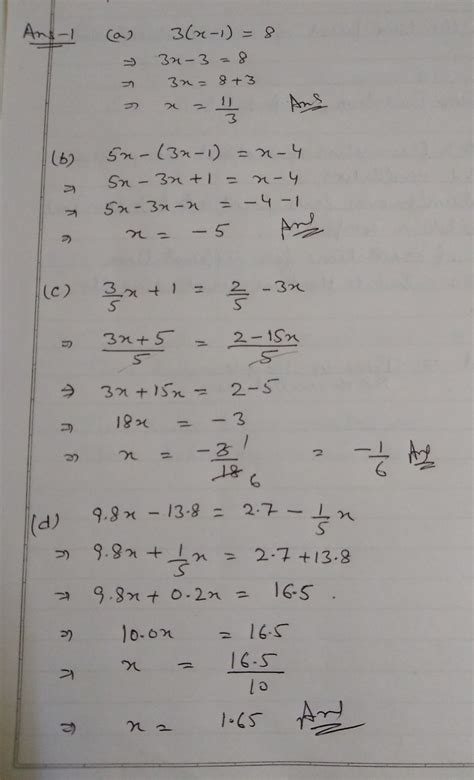 Ans-1 (a) 3(x-1) = 8
⇒ 3x-3 = 8
⇒ 3x = 8+3
⇒ x = 11/3 Ans
(b) 5x-(3x-1) = x-4
⇒ 5x-3x+1 = x-4
⇒ 5x-3x-x = -4-1
⇒ x = -5 Ans
(c) 3/5 x + 1 = 2/5 - 3x
⇒ 3x+5/5 = 2-15x/5
⇒ 3x+15x = 2-5
⇒ 18x = -3
⇒ x = -3 1/18 6 = -1/6 Ans
(d) 9.8x - 13.8 = 2.7 - 1/5 x
⇒ 9.8x + 1/5 x = 2.7+13.8
⇒ 9.8x + 0.2x = 16.5.
⇒ 10.0x = 16.5
⇒ x = 16.5/10
⇒ x = 1.65 Ans